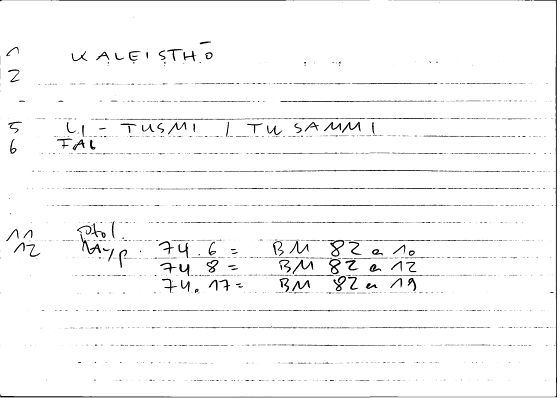 1 KALEISTHŌ
2
5 LI - TUSMI / TUSAMMI
6 FAL
11 Ptol.
12 74.6 = BM 82 a 10
74 8 = BM 82 a 12
74.17 = BM 82 a 19